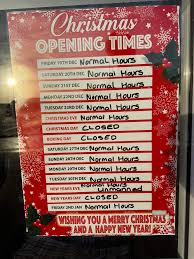 Christmas
OPENING TIMES
FRIDAY 19TH DEC Normal Hours
SATURDAY 20TH DEC Normal Hours
SUNDAY 21ST DEC Normal Hours
MONDAY 22ND DEC Normal Hours
TUESDAY 23RD DEC Normal Hours
CHRISTMAS EVE Normal Hours
CHRISTMAS DAY CLOSED
BOXING DAY CLOSED
SATURDAY 27TH DEC Normal Hours
SUNDAY 28TH DEC Normal Hours
MONDAY 29TH DEC Normal Hours
TUESDAY 30TH DEC Normal Hours
NEW YEARS EVE Normal Hours
Unmanned
NEW YEARS DAY CLOSED
FRIDAY 2ND JAN Normal Hours
WISHING YOU A MERRY CHRISTMAS
AND A HAPPY NEW YEAR!